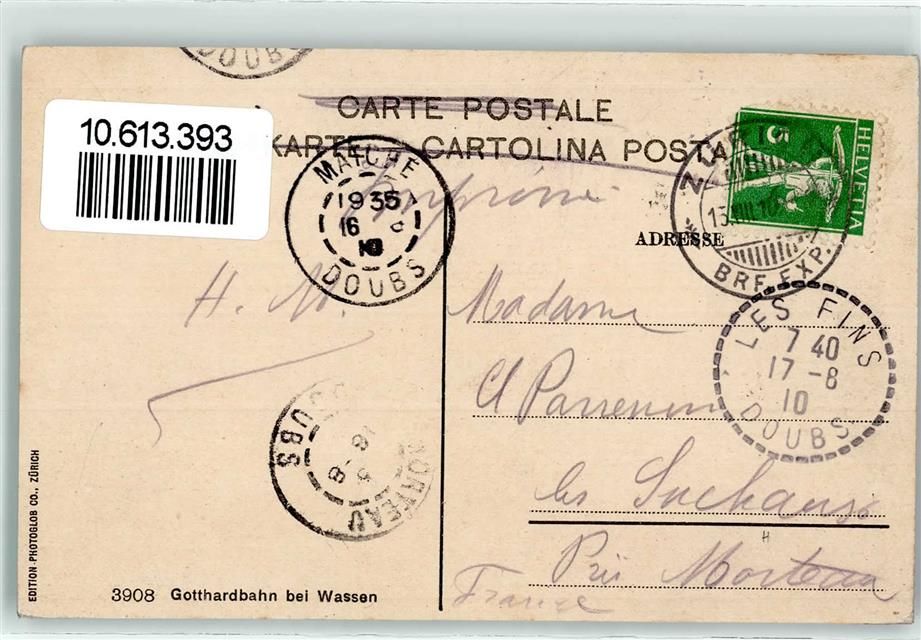 DOUBS
CARTE POSTALE
KARTE CARTOLINA POSTA
10.613.393
MAICHE
1935
16 8
10
DOUBS
Imprimé
HELVETIA
5
BRF. EXP.
ADRESSE
H. M.
Madame
LES FINS
7 40
17 -8
10
DOUBS
MORTEAU
18 -8
DOUBS
les Suchaux
Près Morteau
France
EDITION-PHOTOGLOB CO., ZÜRICH
3908 Gotthardbahn bei Wassen